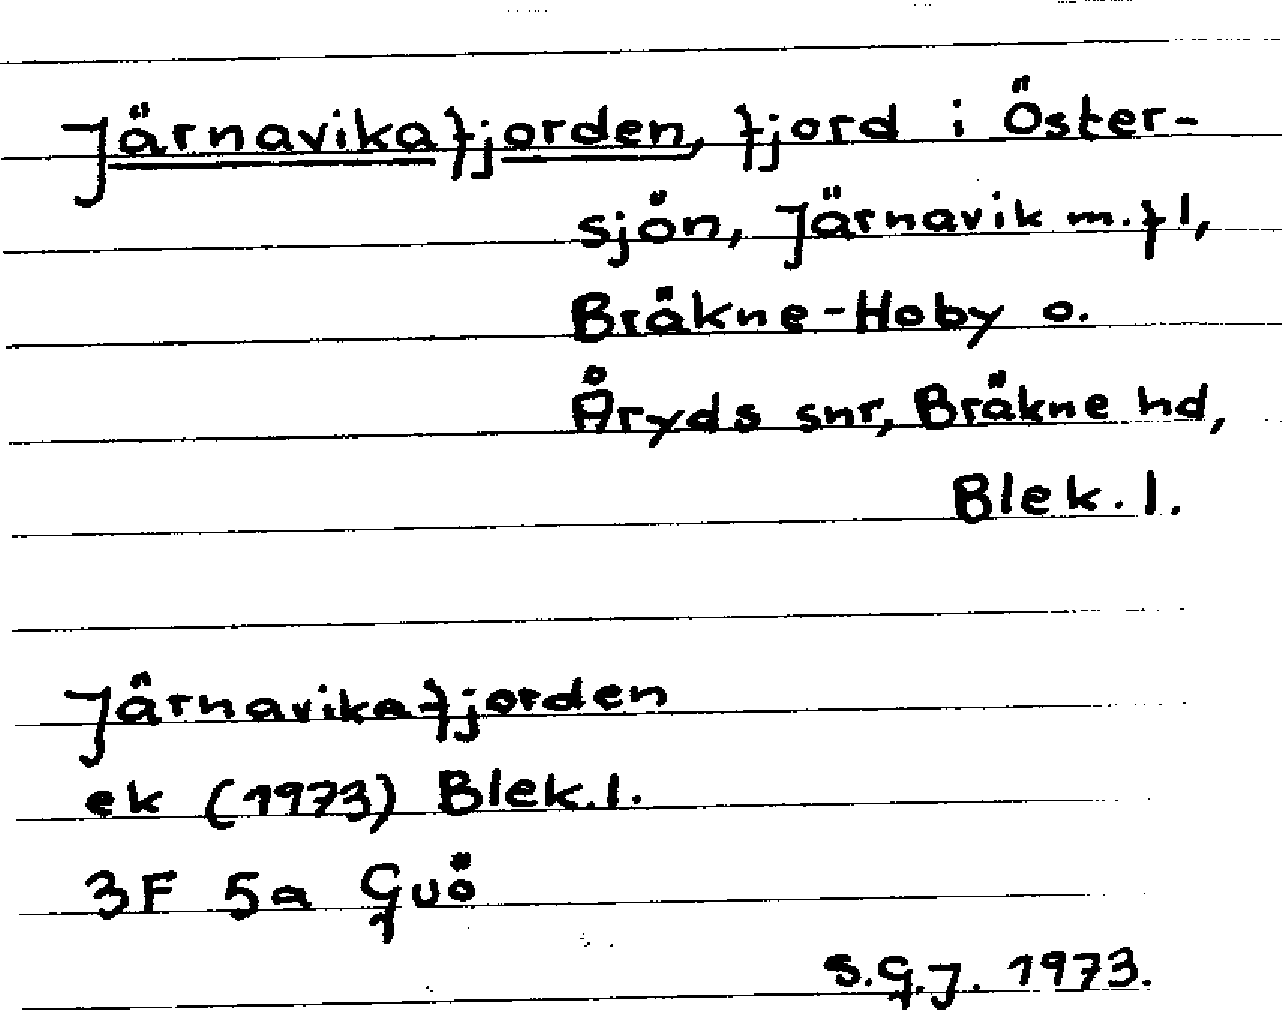 Järnavikafjorden, fjord i Öster-
sjön, Järnavik m.fl,
Bräkne-Hoby o.
Åryds snr, Bräkne hd,
Blek.l.
Järnavikafjorden
ek (1973) Blek.l.
3F 5a Guö
S.G.J. 1973.